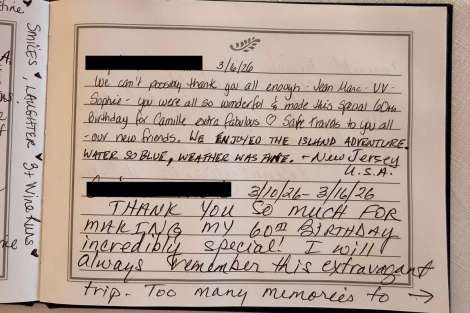 SMILES, LAUGHTER & Wine Runs
3/6/26
We can't possibly thank you all enough - Jean Marc - VV -
Sophie - you were all so wonderful & made this special 60th
birthday for Camille extra fabulous ♡ Safe Travels to you all
- our new friends. WE ENJOYED THE ISLAND ADVENTURE.
WATER SO BLUE, WEATHER WAS FINE. - New Jersey
U.S.A.
3/10/26 - 3/16/26
THANK YOU SO MUCH FOR
MAKING MY 60TH BIRTHDAY
incredibly special! I will
always remember this extravagant
trip. Too many memories to →